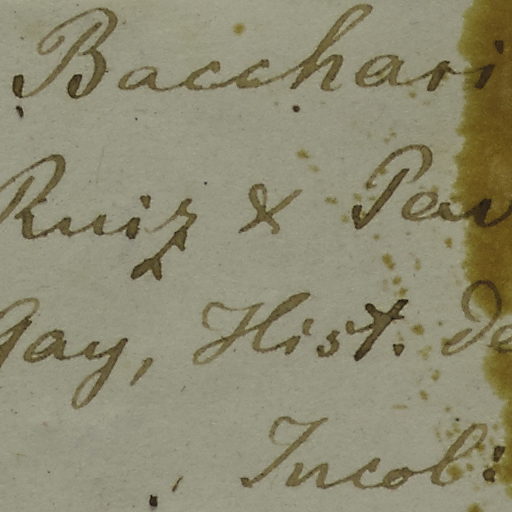 Bacchari
Ruiz & Pav
Gay, Hist. de
Incol: